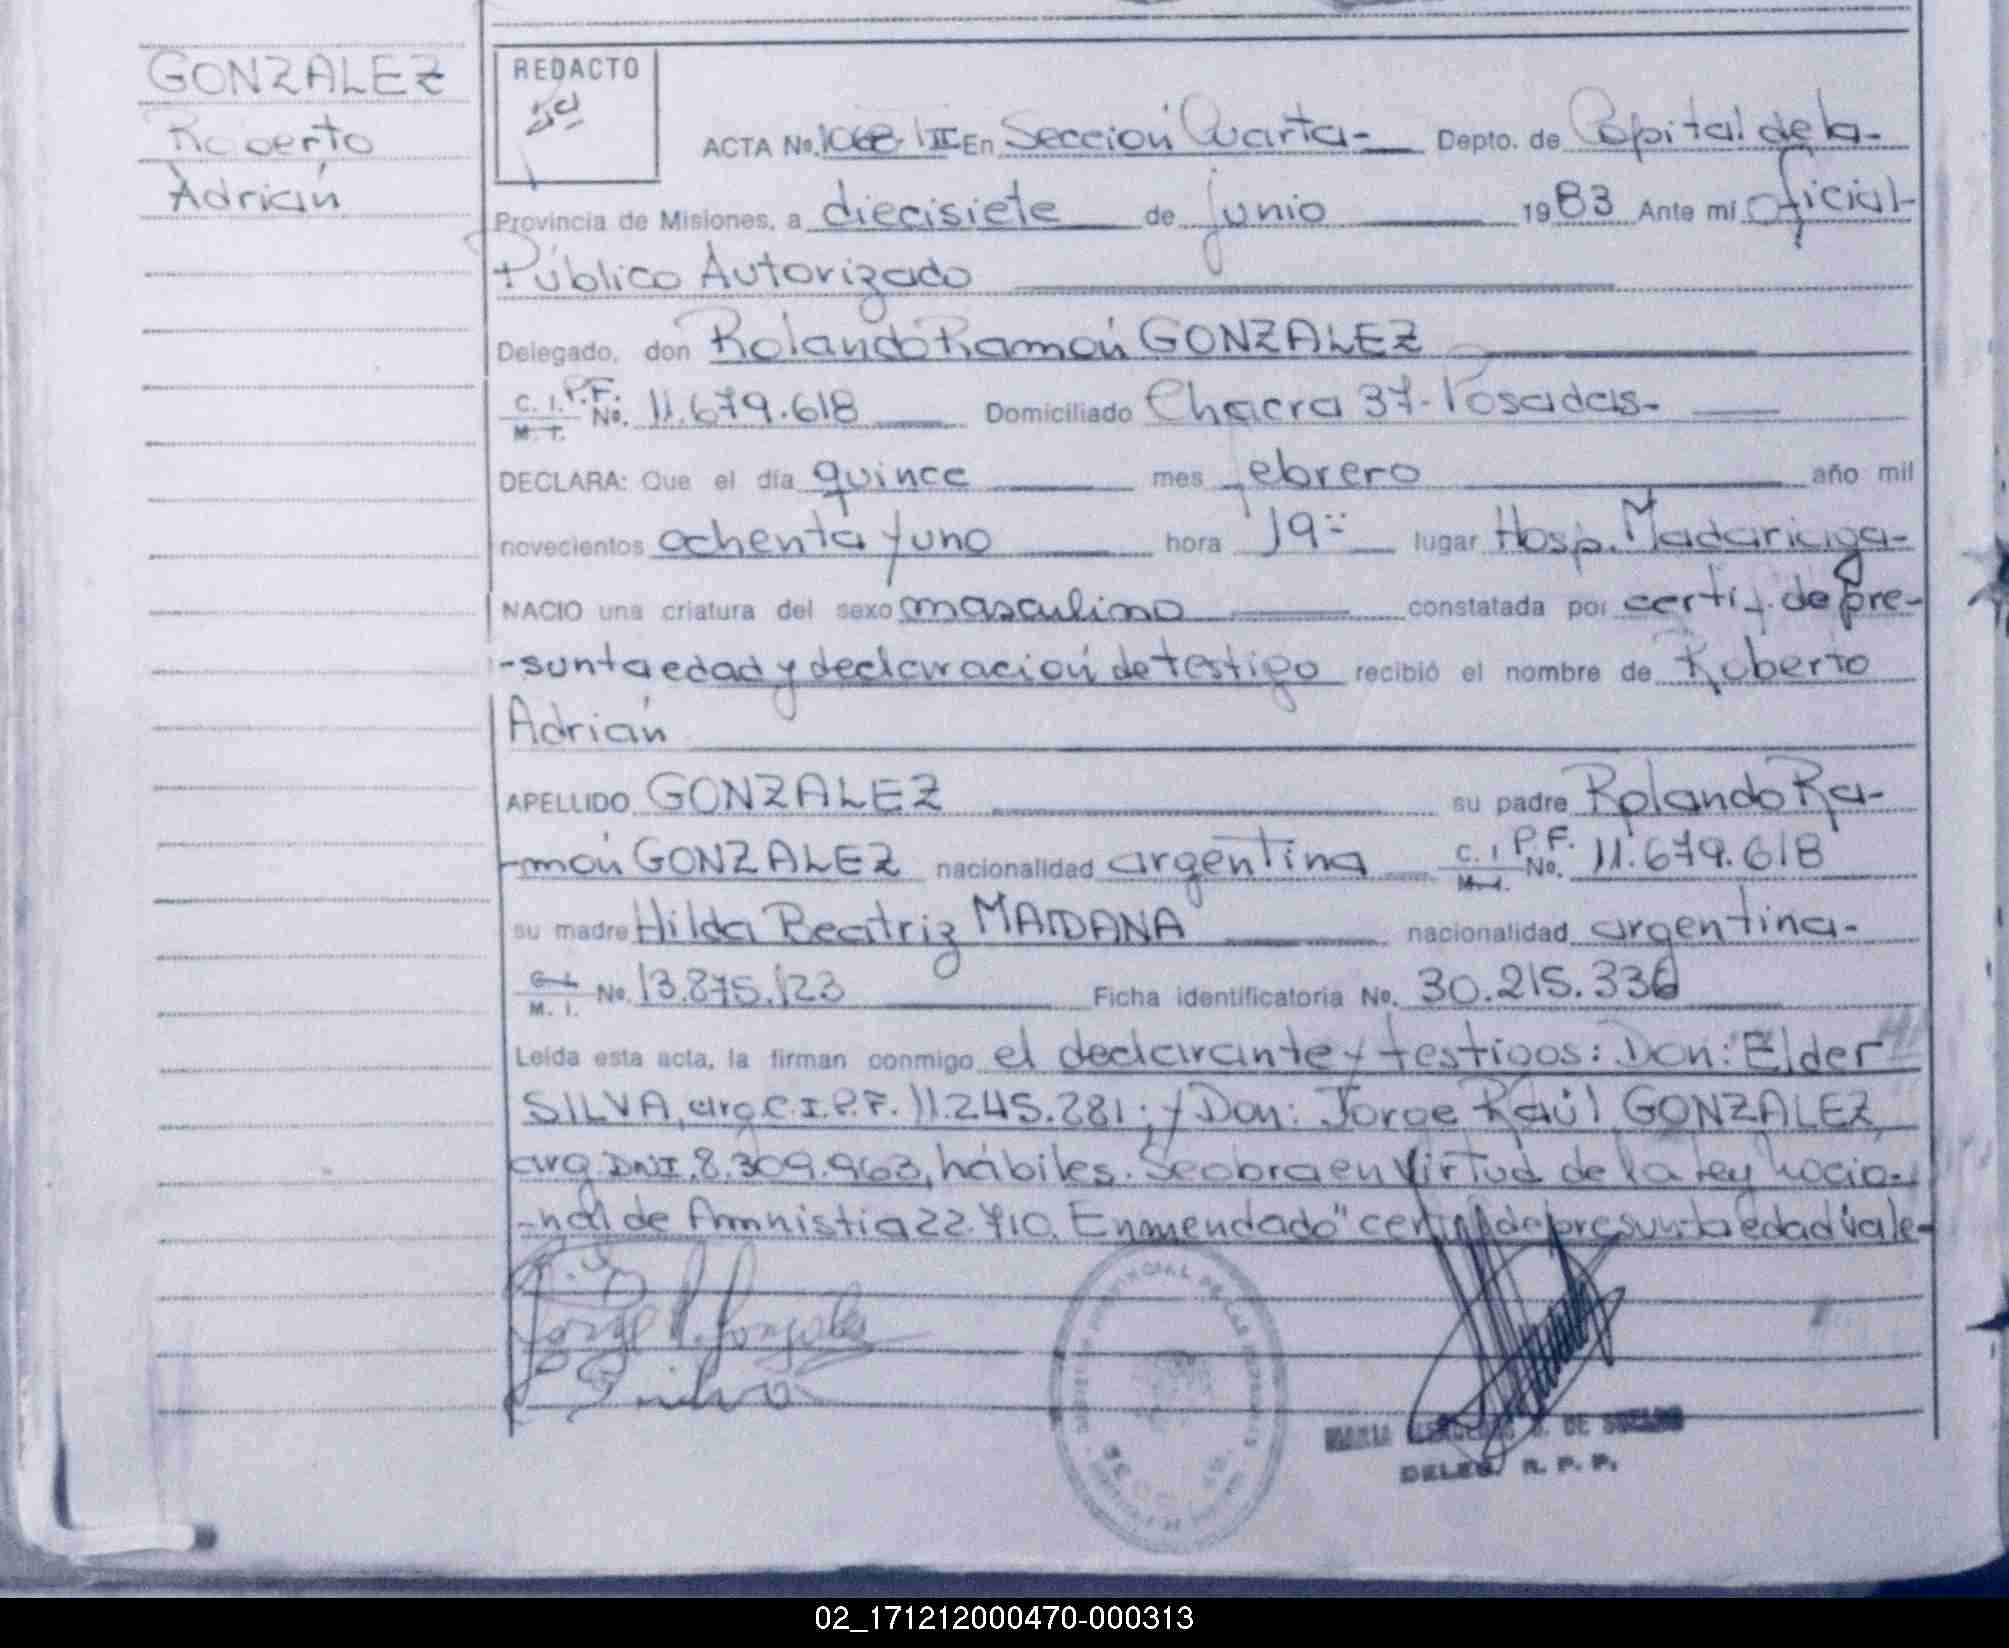 GONZALEZ
Roberto
Adrián
REDACTO
ACTA No. 1068 III En Sección Cuarta- Depto. de Capital de la-
Provincia de Misiones, a diecisiete de junio 1983 Ante mí Oficial-
Público Autorizado
Delegado, don Rolando Ramón GONZALEZ
C. I. P.F. M. I. No. 11.679.618 Domiciliado Chacra 37- Posadas-
DECLARA: Que el día quince mes febrero año mil
novecientos ochenta y uno hora 19 lugar Hosp. Madariaga-
NACIO una criatura del sexo masculino constatada por certif. de pre-
-sunta edad y declaración de testigo recibió el nombre de Roberto
Adrián
APELLIDO GONZALEZ su padre Rolando Ra-
-món GONZALEZ nacionalidad argentina C. I. P.F. M. I. No. 11.679.618
su madre Hilda Beatriz MAIDANA nacionalidad argentina-
C. I. M. I. No. 13.875.123 Ficha identificatoria No. 30.215.336
Leída esta acta, la firman conmigo el declarante y testigos: Don: Elder
SILVA, arg. C.I.P.F. 11.245.281; y Don: Jorge Raúl GONZALEZ
arg. DNI. 8.309.963, hábiles. Se obra en virtud de la Ley nacio-
-nal de Amnistia 22.410. Enmendado "certif. de presunta edad vale-
Jorge R. Gonzalez
E Silva
MARIA DE
DELEG. R. P. P.
02_171212000470-000313